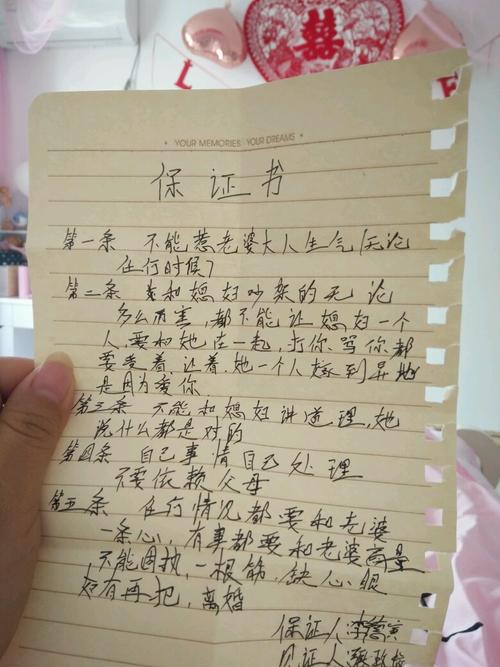 囍
L
E
YOUR MEMORIES YOUR DREAMS
保证书
第一条 不能惹老婆大人生气(无论
任何时候)
第二条 关和媳妇吵架的无论
多么厉害,都不能让媳妇一个
人,要和她在一起,打你骂你都
要受着,让着,她一个人嫁到异地
是因为爱你
第三条 不能和媳妇讲道理,她
说什么都是对的
第四条 自己事情自己处理
不要依赖父母
第五条 任何情况都要和老婆
一条心,有事都要和老婆商量
不能固执,一根筋,缺心眼
没有再把,离婚
保证人李
见证人张